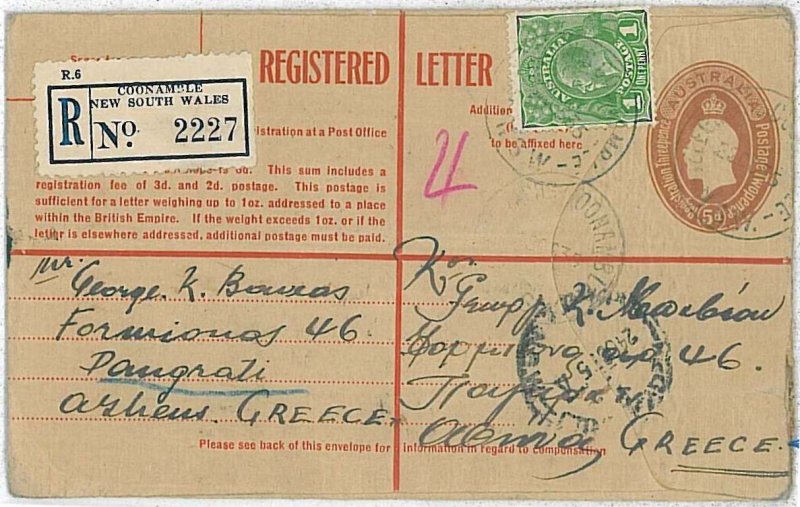 REGISTERED LETTER
R.6
COONAMBLE
NEW SOUTH WALES
R No. 2227
AUSTRALIA
POSTAGE
1 1
ONE PENNY
AUSTRALIA
Registration Threepence Postage Twopence
5D
Addition
to be affixed here
registration at a Post Office
is 5d. This sum includes a
registration fee of 3d. and 2d. postage. This postage is
sufficient for a letter weighing up to 1oz. addressed to a place
within the British Empire. If the weight exceeds 1oz. or if the
letter is elsewhere addressed, additional postage must be paid.
Mr.
George. K.
Formionos 46
Pangrati
Athens. GREECE.
Κον
Γεωργ. Κ.
46.
Παγκρατι
GREECE
Please see back of this envelope for information in regard to compensation